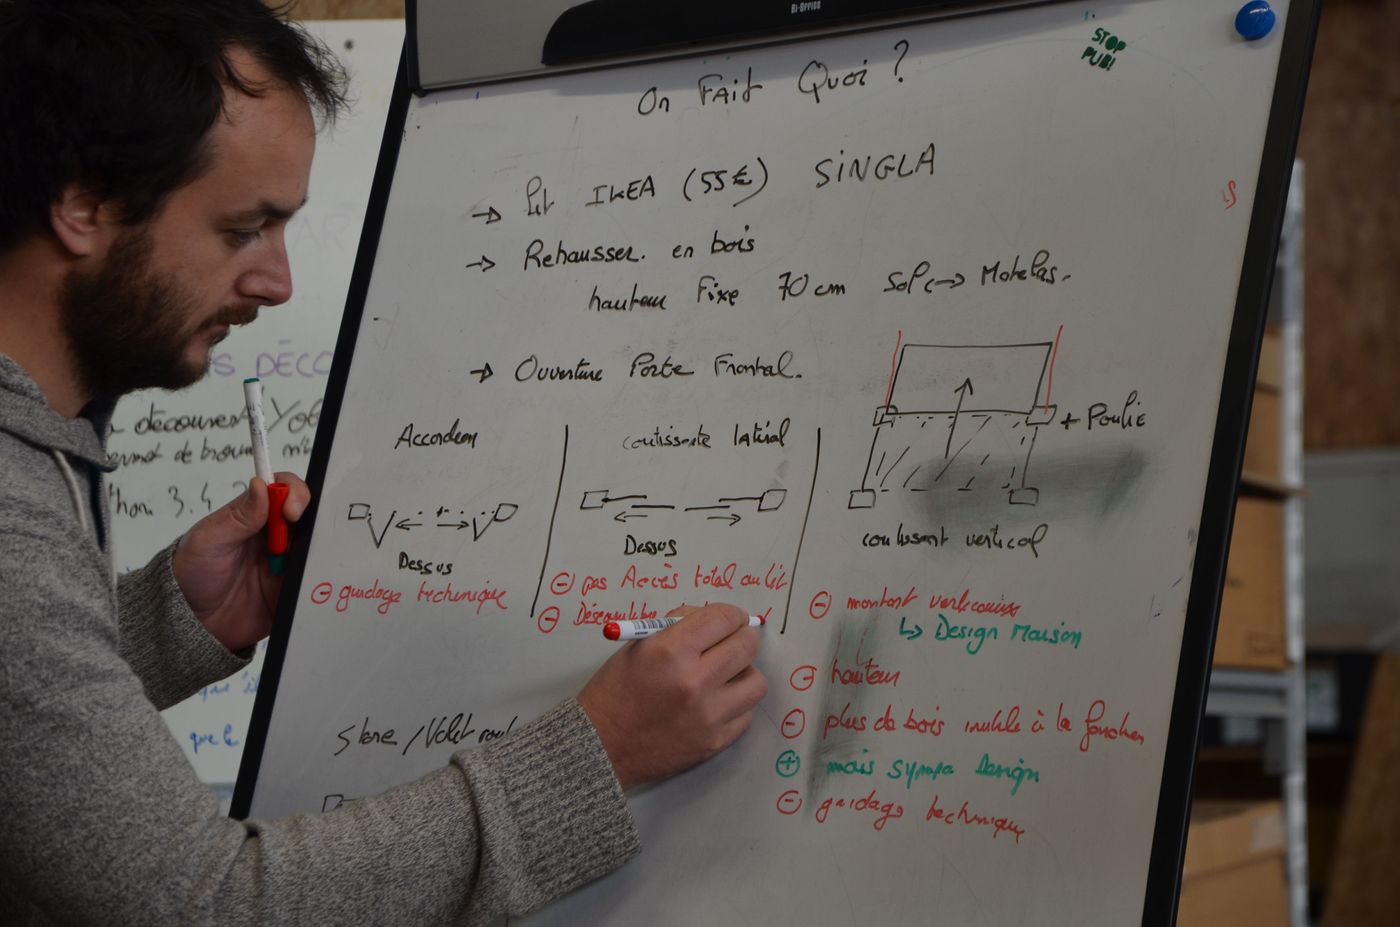 Bi-Office
STOP
PUB!
On Fait Quoi ?
→ Lit IKEA (55€) SiNGLA
→ Rehausser. en bois
hauteur Fixe 70 cm Sol ↔ Matelas.
→ Ouverture Porte Frontal.
+ Poulie
Accordeon
coulissante latéral
Dessus
Dessus
coulissant vertical
⊖ guidage technique
⊖ pas Accès total au lit
⊖
⊖ montant verticaux
↳ Design Maison
⊖ hauteur
⊖ plus de bois inutile à la fonction
⊕ mais sympa Design
⊖ guidage technique
Store / Volet
DÉCO
decouvert
3.4
que le